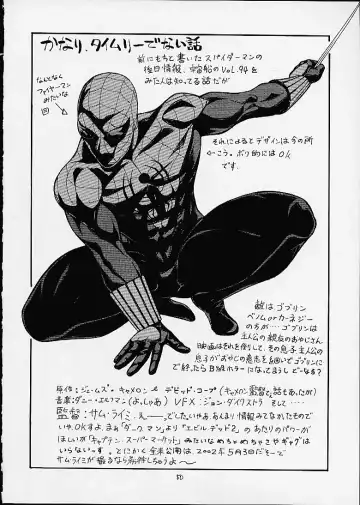 かなり、タイムリーでない話
前にもちょと書いたスパイダーマンの
後日情報、宇宙船のVol.94を
みた人は知ってる話だが
なんとなく
ファイヤーマン
みたいな
図
それによるとデザインは今の所
かっこう、ボク的にはOK
です。
敵はゴブリン
ベノムorカーネジー
のちが ゴブリンは
主人公の親友のおやじさん
映画はそれを倒して、その息子主人公の
息子がおやじの意志を継いでゴブリンに
で終ったらB級ホラーになってまうし どーなる?
原作:ジェームズ・キャメロンとデビッド・コープ(キャメロン監督て話もあったが)
音楽:ダニー・エルフマン(よっしゃあ) VFX:ジョン・ダイクストラ そして
監督:サム・ライミ、えー、でしたいやぁ、あんまり情報みてなかったもので
いや、OKすよ、まぁ「ダークマン」より「エビルデッド2」のあたりのパワーが
ほしいが「キャプテン・スーパーマーケット」みたいなめちゃめちゃさやギャグは
いらないっす。とにかく全米公開は、2002年5月3日だそーで
サムライミが撮るなら期待しちゃうよ〜
50